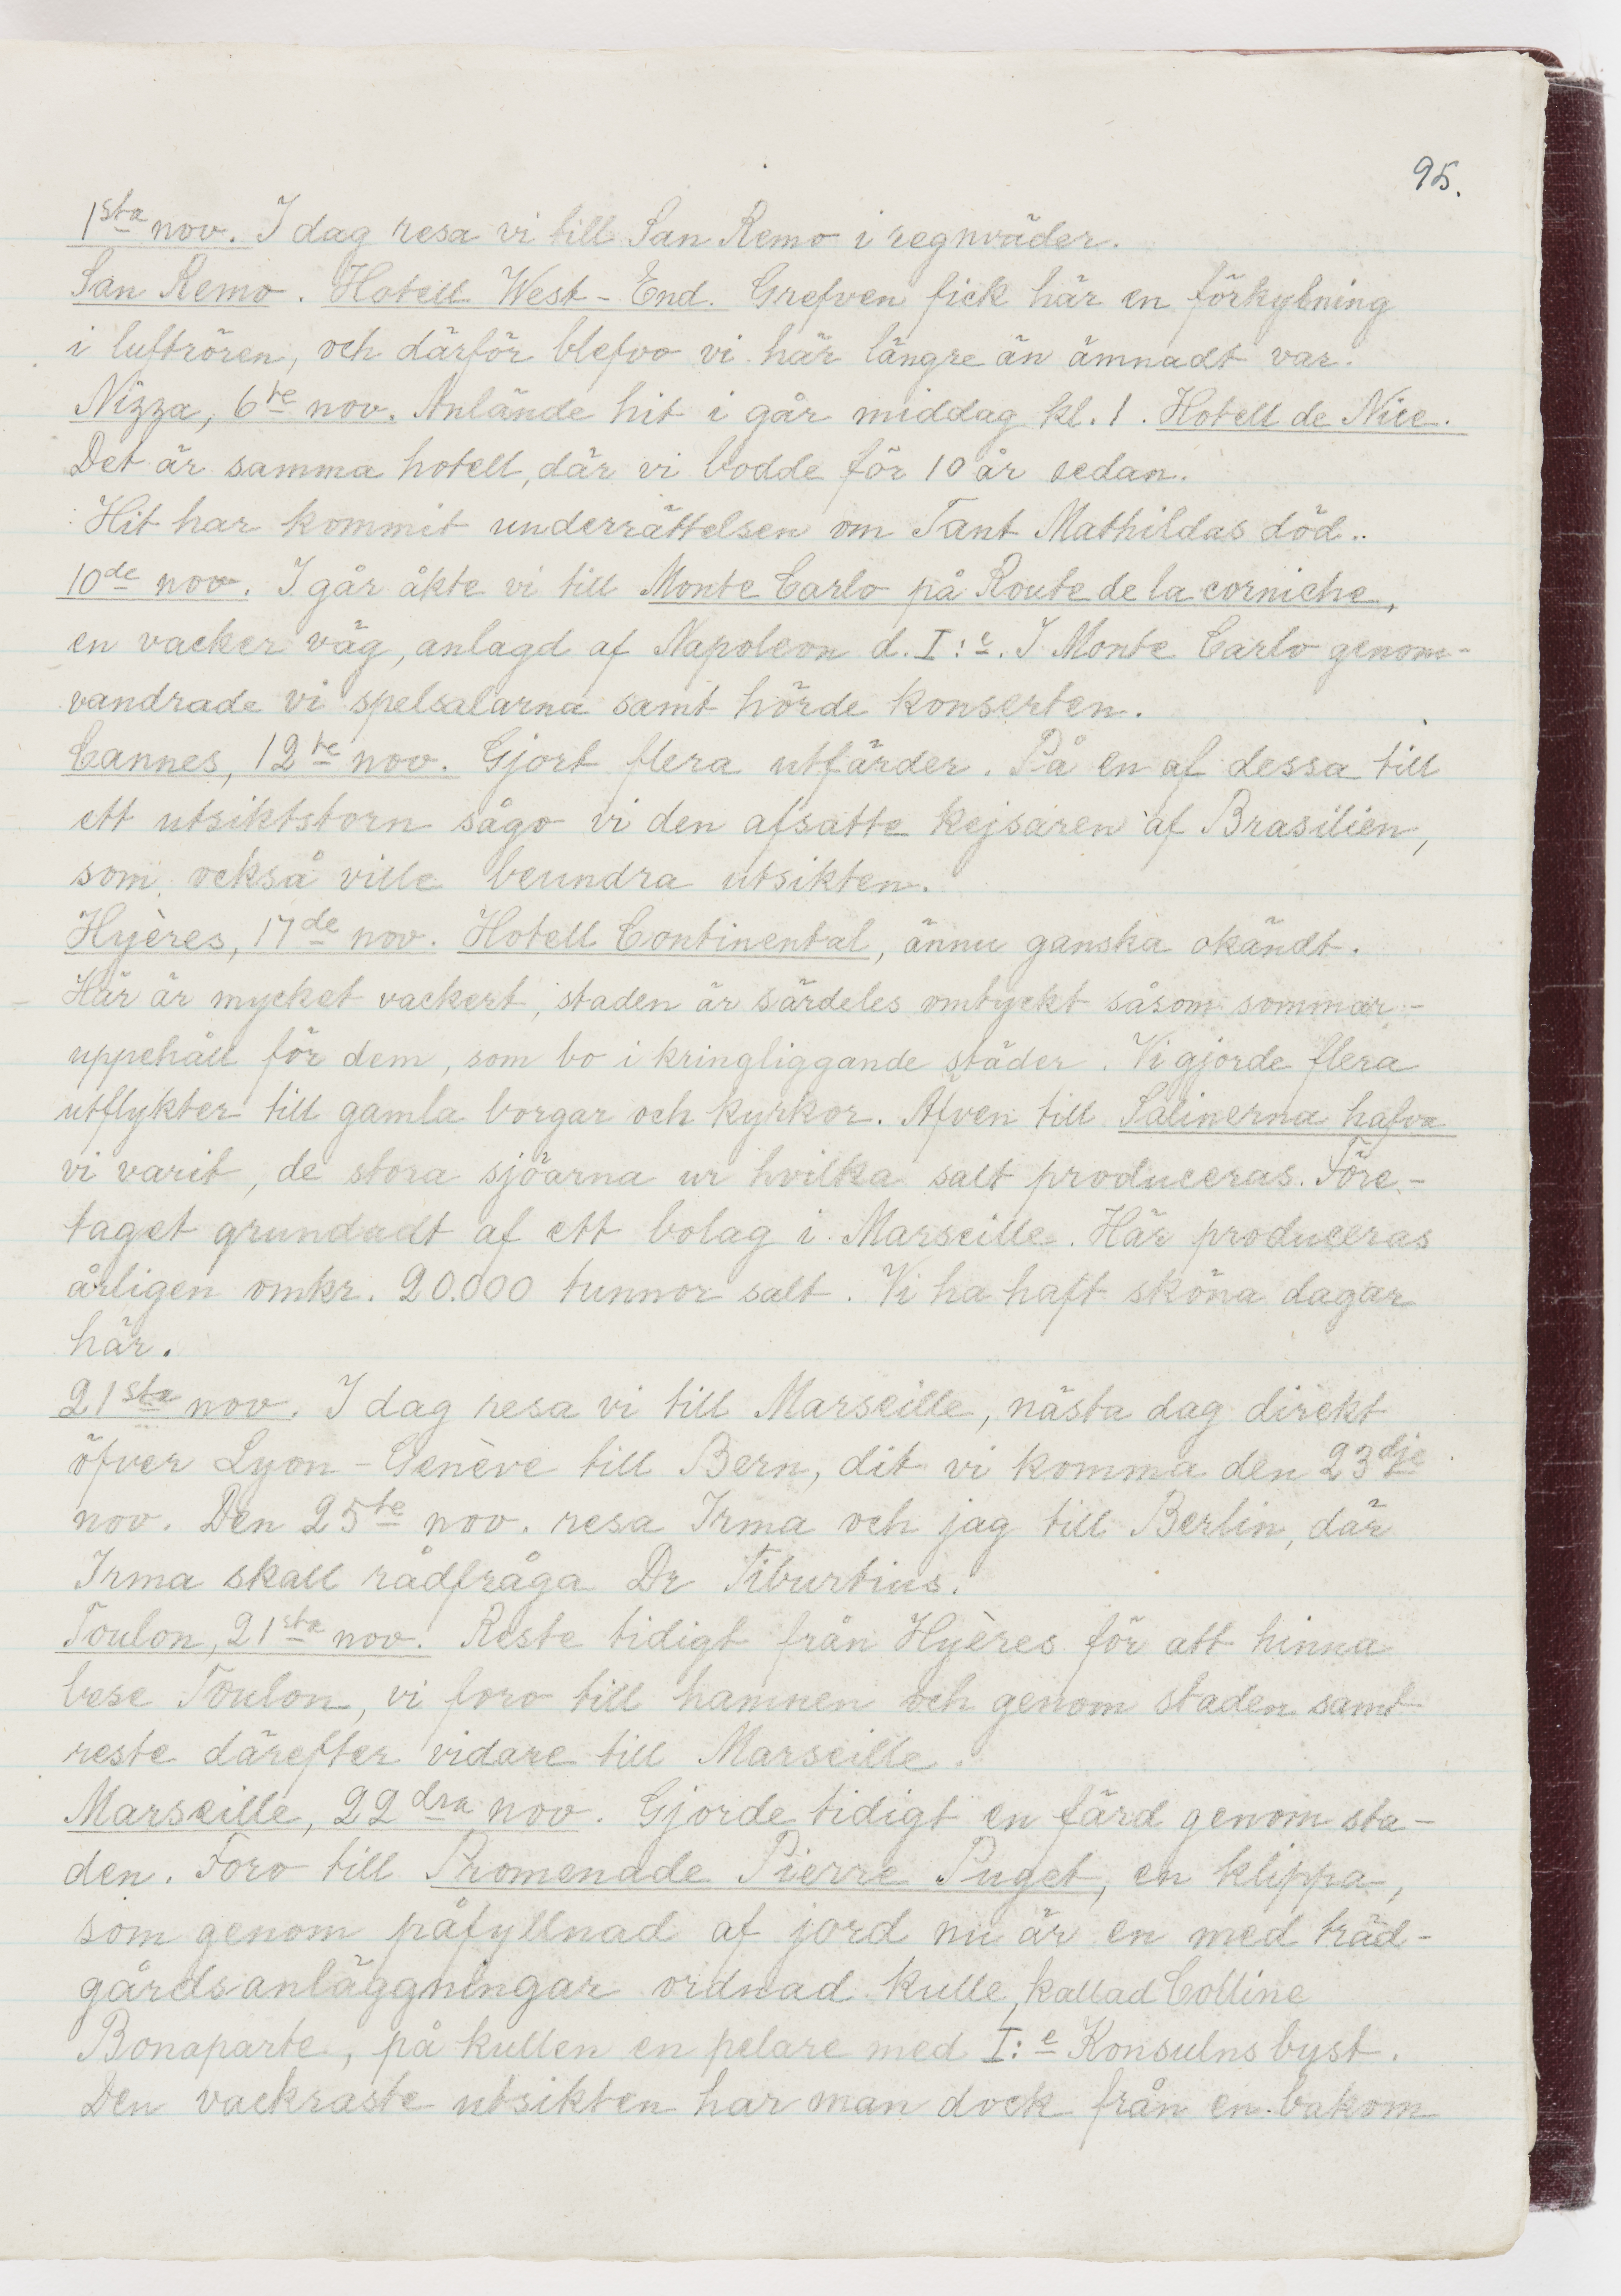 95.
1sta nov. I dag resa vi till San Remo i regnväder.
San Remo. Hotell West-End. Grefven fick här en förkylning
i luftrören, och därför blefvo vi här längre än ämnadt var.
Nizza, 6te nov. Anlände hit i går middag kl. 1. Hotell de Nice.
Det är samma hotell, där vi bodde för 10 år sedan.
Hit har kommit underrättelsen om Tant Mathildas död..
10de nov. I går åkte vi till Monte Carlo på Route de la corniche,
en vacker väg, anlagd af Napoleon d. I:e. I Monte Carlo genom-
vandrade vi spelsalarna samt hörde konserten.
Cannes, 12te nov. Gjort flera utfärder. På en af dessa till
ett utsiktstorn sågo vi den afsatte kejsaren af Brasilien,
som också ville beundra utsikten.
Hyères, 17de nov. Hotell Continental, ännu ganska okändt.
Här är mycket vackert, staden är särdeles omtyckt såsom sommar-
uppehåll för dem, som bo i kringliggande städer. Vi gjorde flera
utflykter till gamla borgar och kyrkor. Äfven till Salinerna hafva
vi varit, de stora sjöarna ur hvilka salt produceras. Före-
taget grundadt af ett bolag i Marseille. Här produceras
årligen omkr. 20.000 tunnor salt. Vi ha haft sköna dagar
här.
21sta nov. I dag resa vi till Marseille, nästa dag direkt
öfver Lyon-Genève till Bern, dit vi komma den 23dje
nov. Den 25te nov. resa Irma och jag till Berlin, där
Irma skall rådfråga Dr Tiburtius.
Toulon, 21sta nov. Reste tidigt från Hyères för att hinna
bese Toulon, vi foro till hamnen och genom staden samt
reste därefter vidare till Marseille.
Marseille, 22dra nov. Gjorde tidigt en färd genom sta-
den. Foro till Promenade Pierre Puget, en klippa,
som genom påfyllnad af jord nu är en med träd-
gårdsanläggningar ordnad kulle, kallad Colline
Bonaparte, på kullen en pelare med I:e Konsulns byst.
Den vackraste utsikten har man dock från en bakom